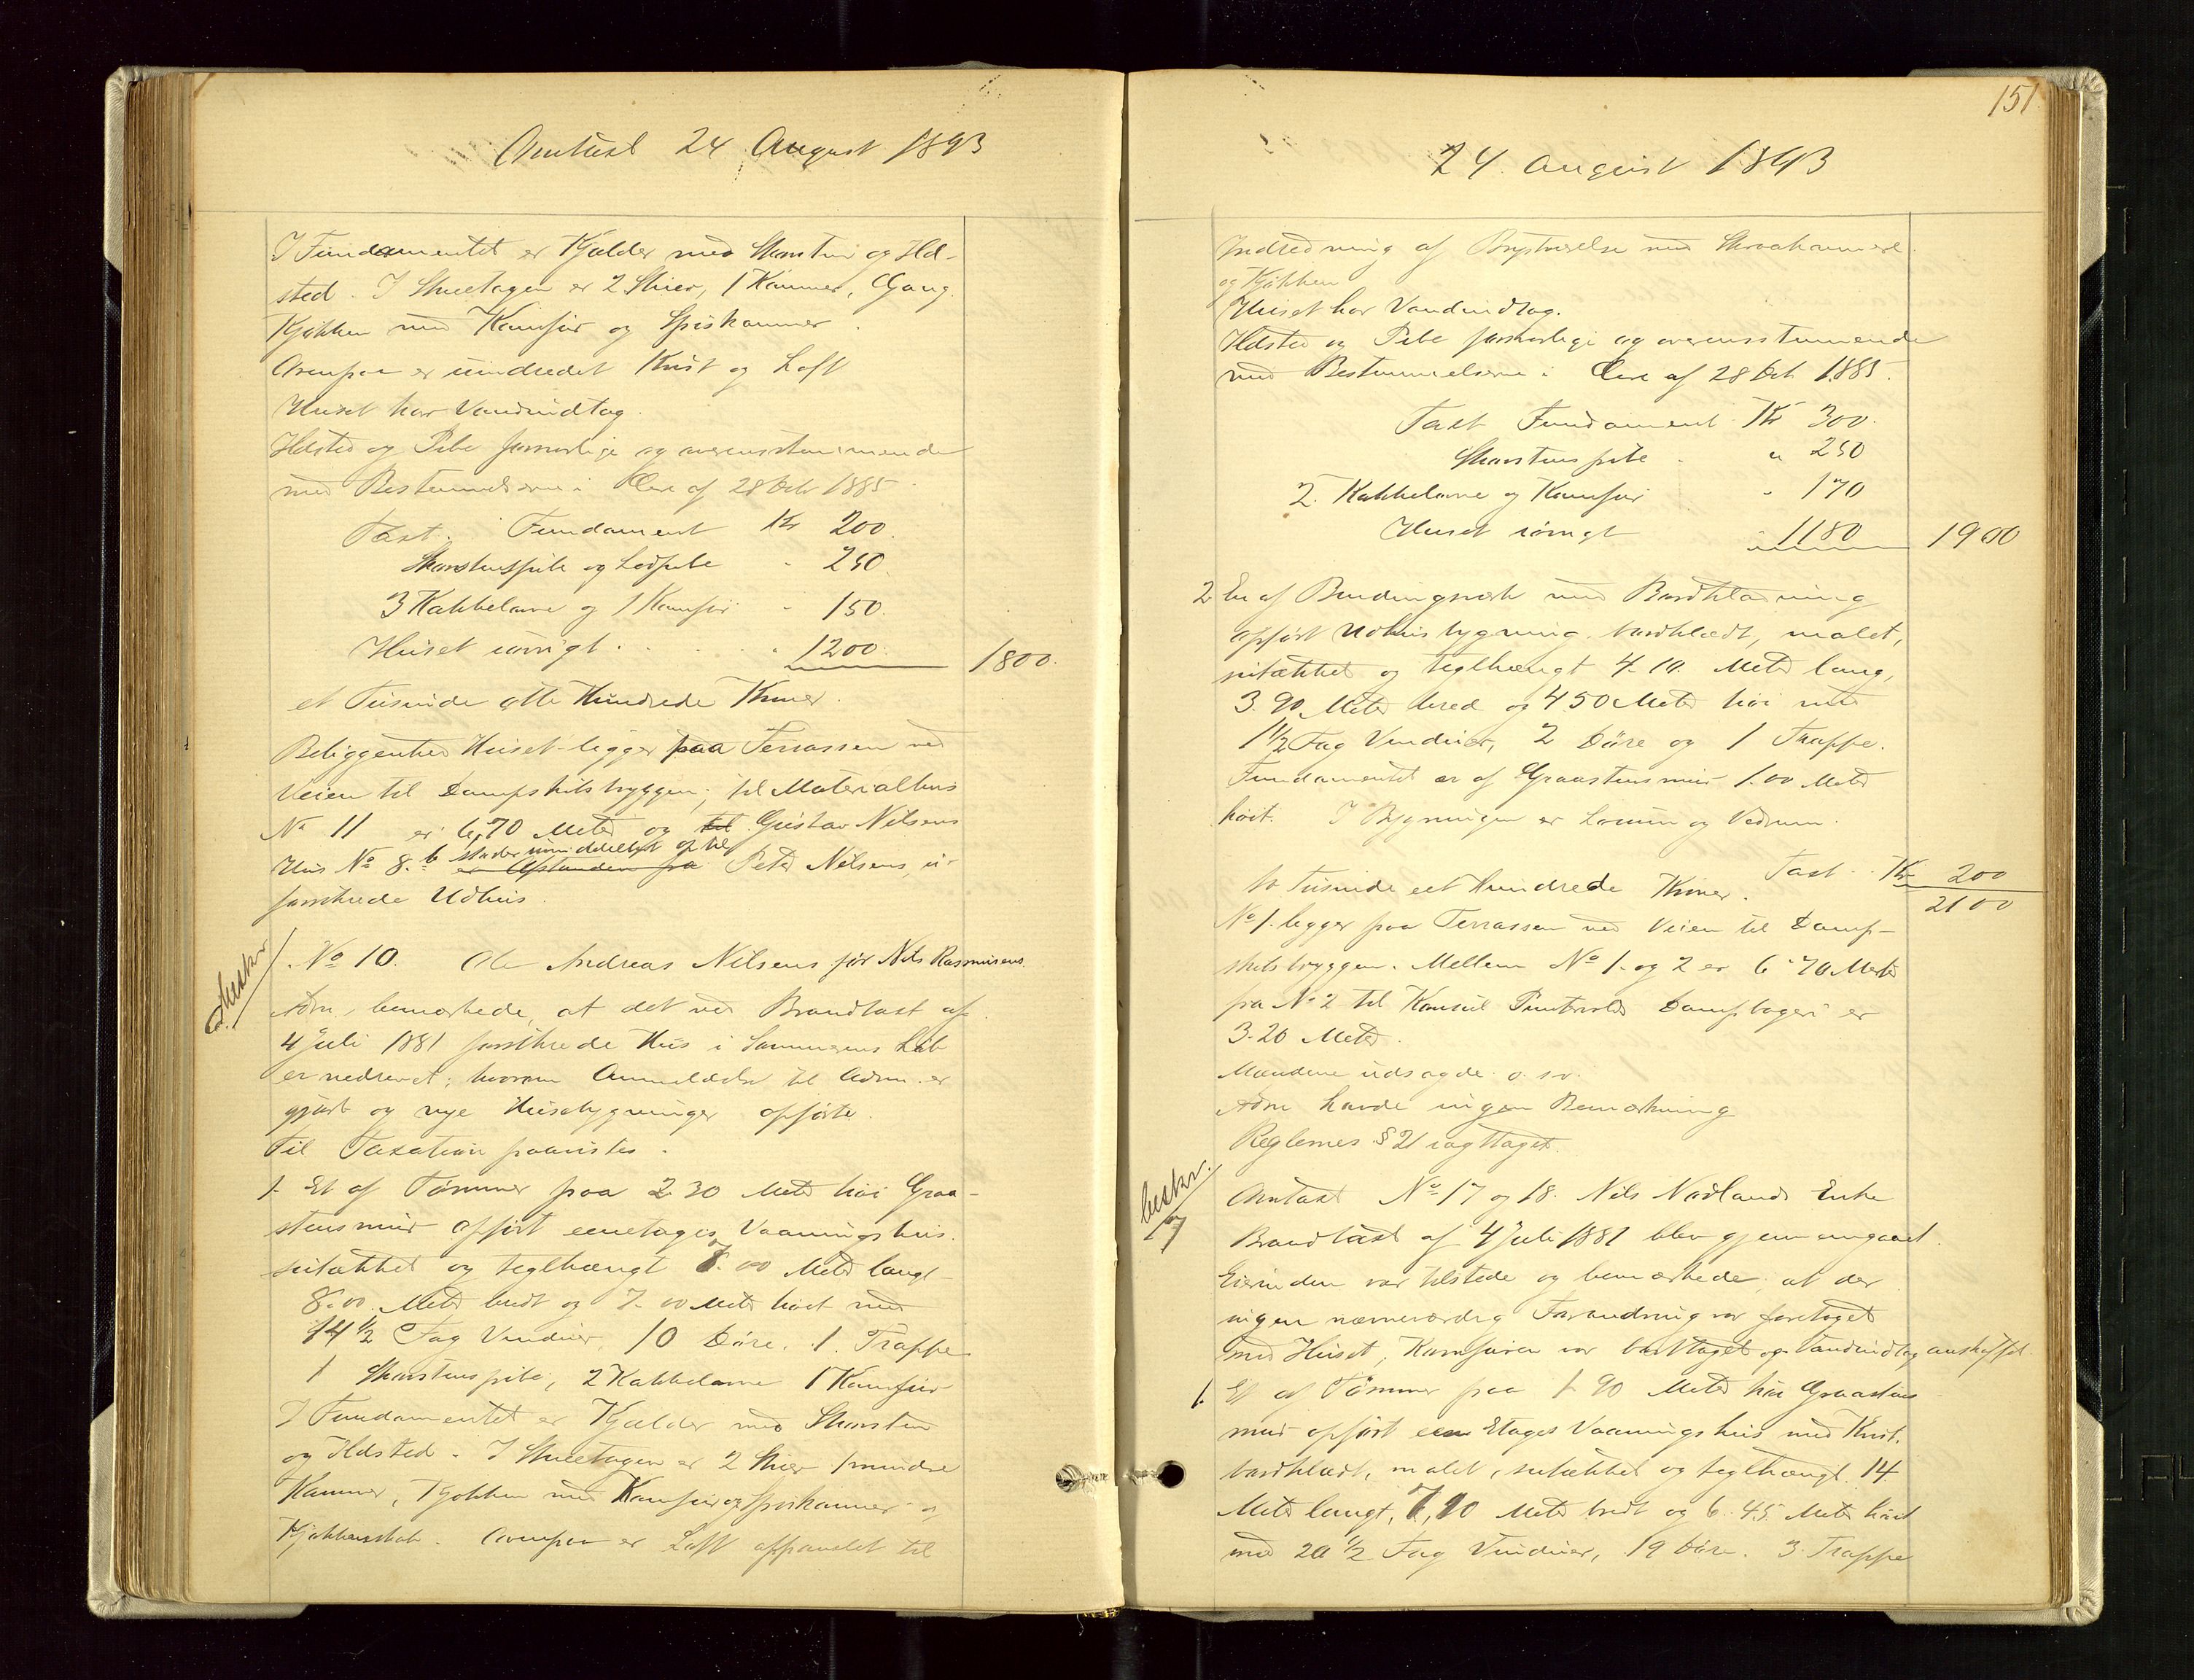 Omtaxt 24 August 1893
I Fundamentet er Kjælder med Skorsten og Ild-
sted. I Stueetagen er 2 Stuer, 1 Kammer, Gang
Kjøkken med Komfür og Spiskammer.
Ovenpaa er uindredet Kvist og Loft
Huset har Vandindtag.
Ildsted og Pibe forsvarlige og overensstemmende
med Bestemmelserne i Circ af 28 Oct 1885.
Taxt. Fundament Kr 200.
Skorstenspibe og Lodpibe " 250.
3 Kakkelovne og 1 Komfür " 150.
Huset iøvrigt . . . . " 1200. 1800.
et Tusinde otte Hundrede Kroner.
Beliggenhed Huset ligger paa Terrassen ved
Veien til Dampskibsbryggen; til Materialhus
No 11 er 6,70 Meter og til Gustav Nilsens
Hus No 8. b støder umiddelbart op til
er Afstanden fra Peter Nilsens, u-
forsikrede Udhus.
beskr.
No 10. Ole Andreas Nilsens før Nils Rasmusens
Adm. bemærkede, at det ved Brandtaxt af
4 Juli 1881 forsikrede Hus i Sommerens Løb
er nedrevet; hvorom Anmeldelse til Adm. er
gjort og nye Husebygninger opførte.
Til Taxation paavistes.
1. Et af Tømmer paa 2.30 Meter høi Graa-
stensmür opført eenetages Vaaningshus.
sutækket og teglhængt 7.00 Meter langt
8.00 Meter bredt og 7.00 Meter høit med
14 1/2 Fag Vinduer, 10 Døre. 1 Trappe
1 Skorstenspibe, 2 Kakkelovne 1 Komfür
I Fundamentet er Kjælder med Skorsten
og Ildsted. I Stueetagen er 2 Stuer 1 mindre
Kammer, Kjøkken med Komfür og Spiskammer og
Kjøkkenskab. Ovenpaa er Loft oppanelet til
151
24 August 1893
Indredning af Kvistværelse med Skraakammers
og Kjøkken
Huset har Vandindtag.
Ildsted og Pibe forsvarlige og overensstemmende
med Bestemmelserne i Circ af 28 Oct 1885.
Taxt Fundament Kr 300.
Skorstenspibe " 250
2 Kakkelovne og Komfür " 170
Huset iøvrigt " 1180 1900
2 En af Bindingsværk med Bordklædning
opført Udhusbygning, bordklædt, malet,
sutækket og teglhængt 4.10 Meter lang,
3.90 Meter bred og 4.50 Meter høi med
1 1/2 Fag Vinduer, 2 Døre og 1 Trappe.
Fundamentet er af Graastensmür 1.00 Meter
høit. I Bygningen er Locum og Vedrum.
Taxt. Kr 200
to Tusinde eet Hundrede Kroner. 2100
No 1. ligger paa Terrassen ved Veien til Damp-
skibsbryggen. Mellem No 1. og 2 er 6.70 Meter
fra No 2 til Konsul Dampbageri er
3.20 Meter.
Mændene udsagde o. s.v.
Adm havde ingen Bemærkning
Reglemes § 21 iagttaget.
beskr.
7
Omtaxt No 17 og 18. Nils Nødlands Enke
Brandtaxt af 4 Juli 1881 blev gjennemgaaet.
Eierinden var tilstede og bemærkede, at der
ingen nævneværdig Forandring var foretaget
med Huset, Komfuren var borttaget og Vandindtag anskaffet.
1. Et af Tømmer paa 1.90 Meter høi Graastens
mür opført een Etages Vaaningshus med Kvist.
bordklædt, malet, sutækket og teglhængt 14
Meter langt, 7,10 Meter bredt og 6.45 Meter høit
med 20 1/2 Fag Vinduer, 19 Døre. 3 Trappe